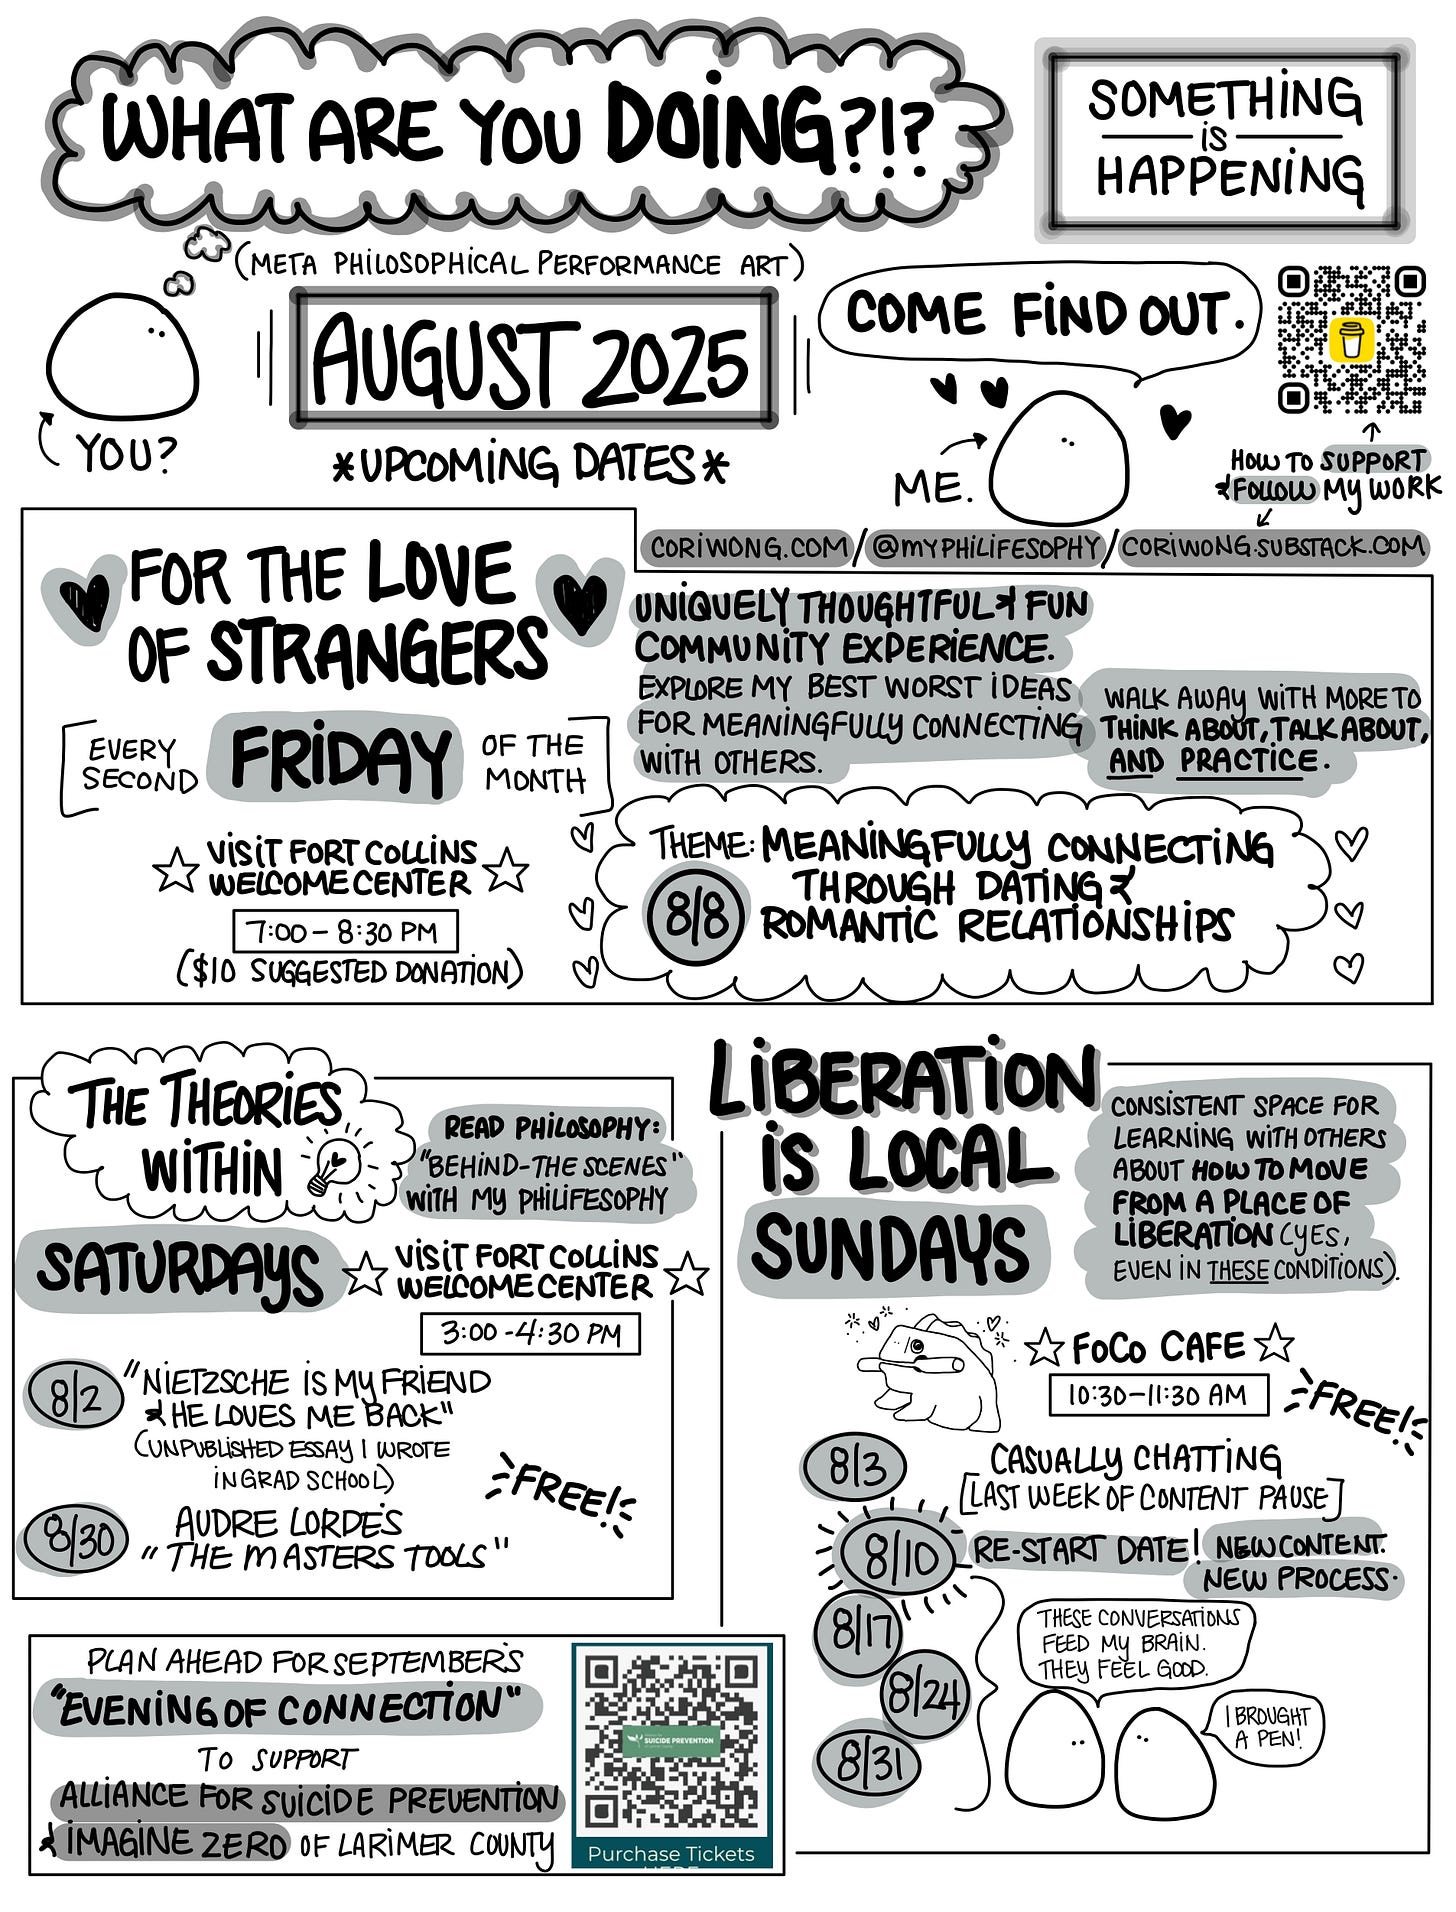 WHAT ARE YOU DOING?!?
SOMETHING
IS
HAPPENING
(META PHILOSOPHICAL PERFORMANCE ART)
AUGUST 2025
*UPCOMING DATES*
YOU?
COME FIND OUT.
ME.
HOW TO SUPPORT
& FOLLOW MY WORK
CORIWONG.COM/@MYPHILIFESOPHY/CORIWONG.SUBSTACK.COM
FOR THE LOVE
OF STRANGERS
EVERY SECOND FRIDAY OF THE MONTH
VISIT FORT COLLINS
WELCOME CENTER
7:00 - 8:30 PM
($10 SUGGESTED DONATION)
UNIQUELY THOUGHTFUL & FUN
COMMUNITY EXPERIENCE.
EXPLORE MY BEST WORST IDEAS
FOR MEANINGFULLY CONNECTING
WITH OTHERS.
WALK AWAY WITH MORE TO
THINK ABOUT, TALK ABOUT,
AND PRACTICE.
THEME: MEANINGFULLY CONNECTING
8/8 THROUGH DATING &
ROMANTIC RELATIONSHIPS
THE THEORIES
WITHIN
READ PHILOSOPHY:
"BEHIND-THE SCENES"
WITH MY PHILIFESOPHY
SATURDAYS
VISIT FORT COLLINS
WELCOME CENTER
3:00 - 4:30 PM
8/2 "NIETZSCHE IS MY FRIEND
& HE LOVES ME BACK"
(UNPUBLISHED ESSAY I WROTE
IN GRAD SCHOOL)
FREE!
8/30 AUDRE LORDE'S
"THE MASTERS TOOLS"
LIBERATION
IS LOCAL
SUNDAYS
CONSISTENT SPACE FOR
LEARNING WITH OTHERS
ABOUT HOW TO MOVE
FROM A PLACE OF
LIBERATION (YES,
EVEN IN THESE CONDITIONS).
FOCO CAFE
10:30-11:30 AM
FREE!
8/3 CASUALLY CHATTING
[LAST WEEK OF CONTENT PAUSE]
8/10 RE-START DATE! NEW CONTENT.
NEW PROCESS.
8/17
8/24
8/31
THESE CONVERSATIONS
FEED MY BRAIN.
THEY FEEL GOOD.
I BROUGHT
A PEN!
PLAN AHEAD FOR SEPTEMBER'S
"EVENING OF CONNECTION"
TO SUPPORT
ALLIANCE FOR SUICIDE PREVENTION
& IMAGINE ZERO OF LARIMER COUNTY
SUICIDE PREVENTION
Purchase Tickets